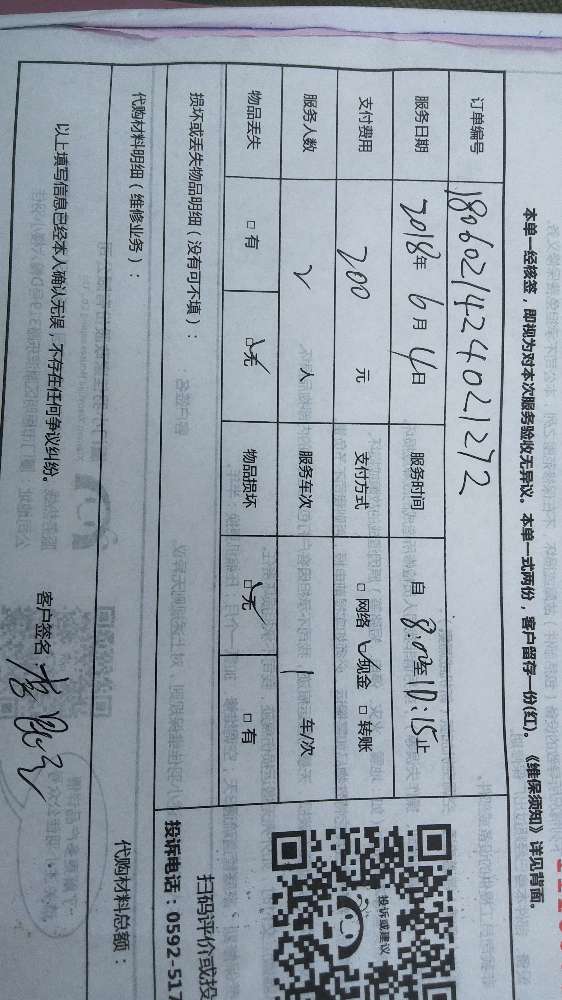 本单一经核签，即视为对本次服务验收无异议。本单一式两份，客户留存一份(红)。《维保须知》详见背面。
订单编号 180602142402 1272
服务日期 2018年 6月 4日 服务时间 自 8:00至10:15止
支付费用 200 元 支付方式 □ 网络 ☑ 现金 □ 转账
服务人数 2 人 服务车次 1 车/次
物品丢失 □ 有 ☑ 无 物品损坏 ☑ 无 □ 有
损坏或丢失物品明细（没有可不填）：
代购材料明细（维修业务）：
代购材料总额：
以上填写信息已经本人确认无误，不存在任何争议纠纷。
客户签名
投诉或建议
扫码评价或投
投诉电话：0592-517